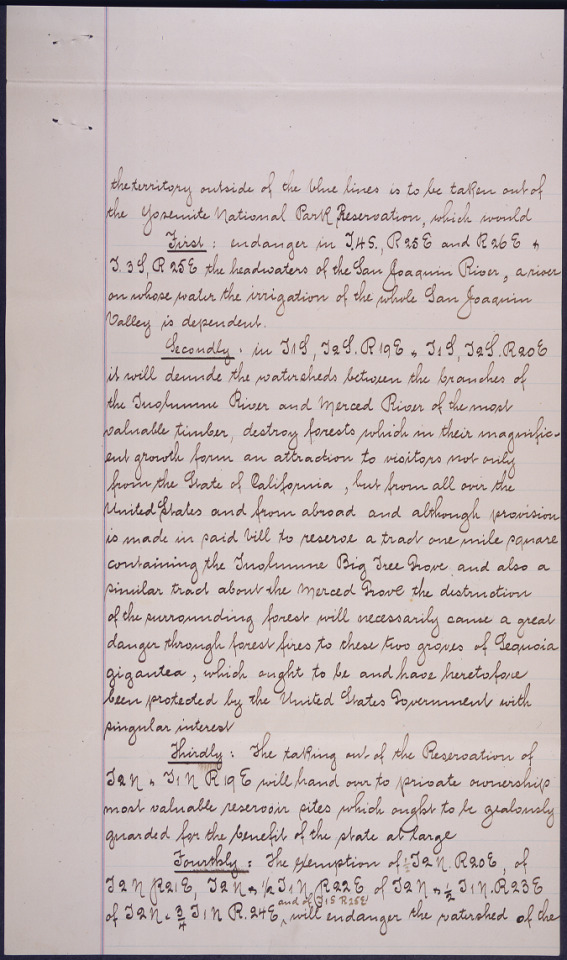 the territory outside of the blue lines is to be taken out of
the Yosemite National Park Reservation, which would
First : endanger in T.4S., R25E and R26E &
T. 3S, R25E the headwaters of the San Joaquin River, a river
on whose water the irrigation of the whole San Joaquin
Valley is dependent.
Secondly. in T1S, T2S. R19E & T1S, T2S. R20E
it will denude the watersheds between the branches of
the Tuolumne River and Merced River of the most
valuable timber, destroy forests which in their magnific-
ent growth form an attraction to visitors not only
from the State of California, but from all over the
United States and from abroad and although provision
is made in said bill to reserve a tract one mile square
containing the Tuolumne Big Tree Grove and also a
similar tract about the Merced Grove the distruction
of the surrounding forest will necessarily cause a great
danger through forest fires to these two groves of Sequoia
gigantea, which ought to be and have heretofore
been protected by the United States Government with
singular interest
Thirdly : The taking out of the Reservation of
T2N & T1N R19E will hand over to private ownership
most valuable reservoir sites which ought to be zealously
guarded for the benefit of the state at large
Fourthly : The exemption of ½ T2N. R20E, of
T2N R21E, T2N & ½ T1N R22E of T2N & ½ T1N. R23E
and of T1S R25E
of T2N & ¾ T1N R. 24E, will endanger the watershed of the